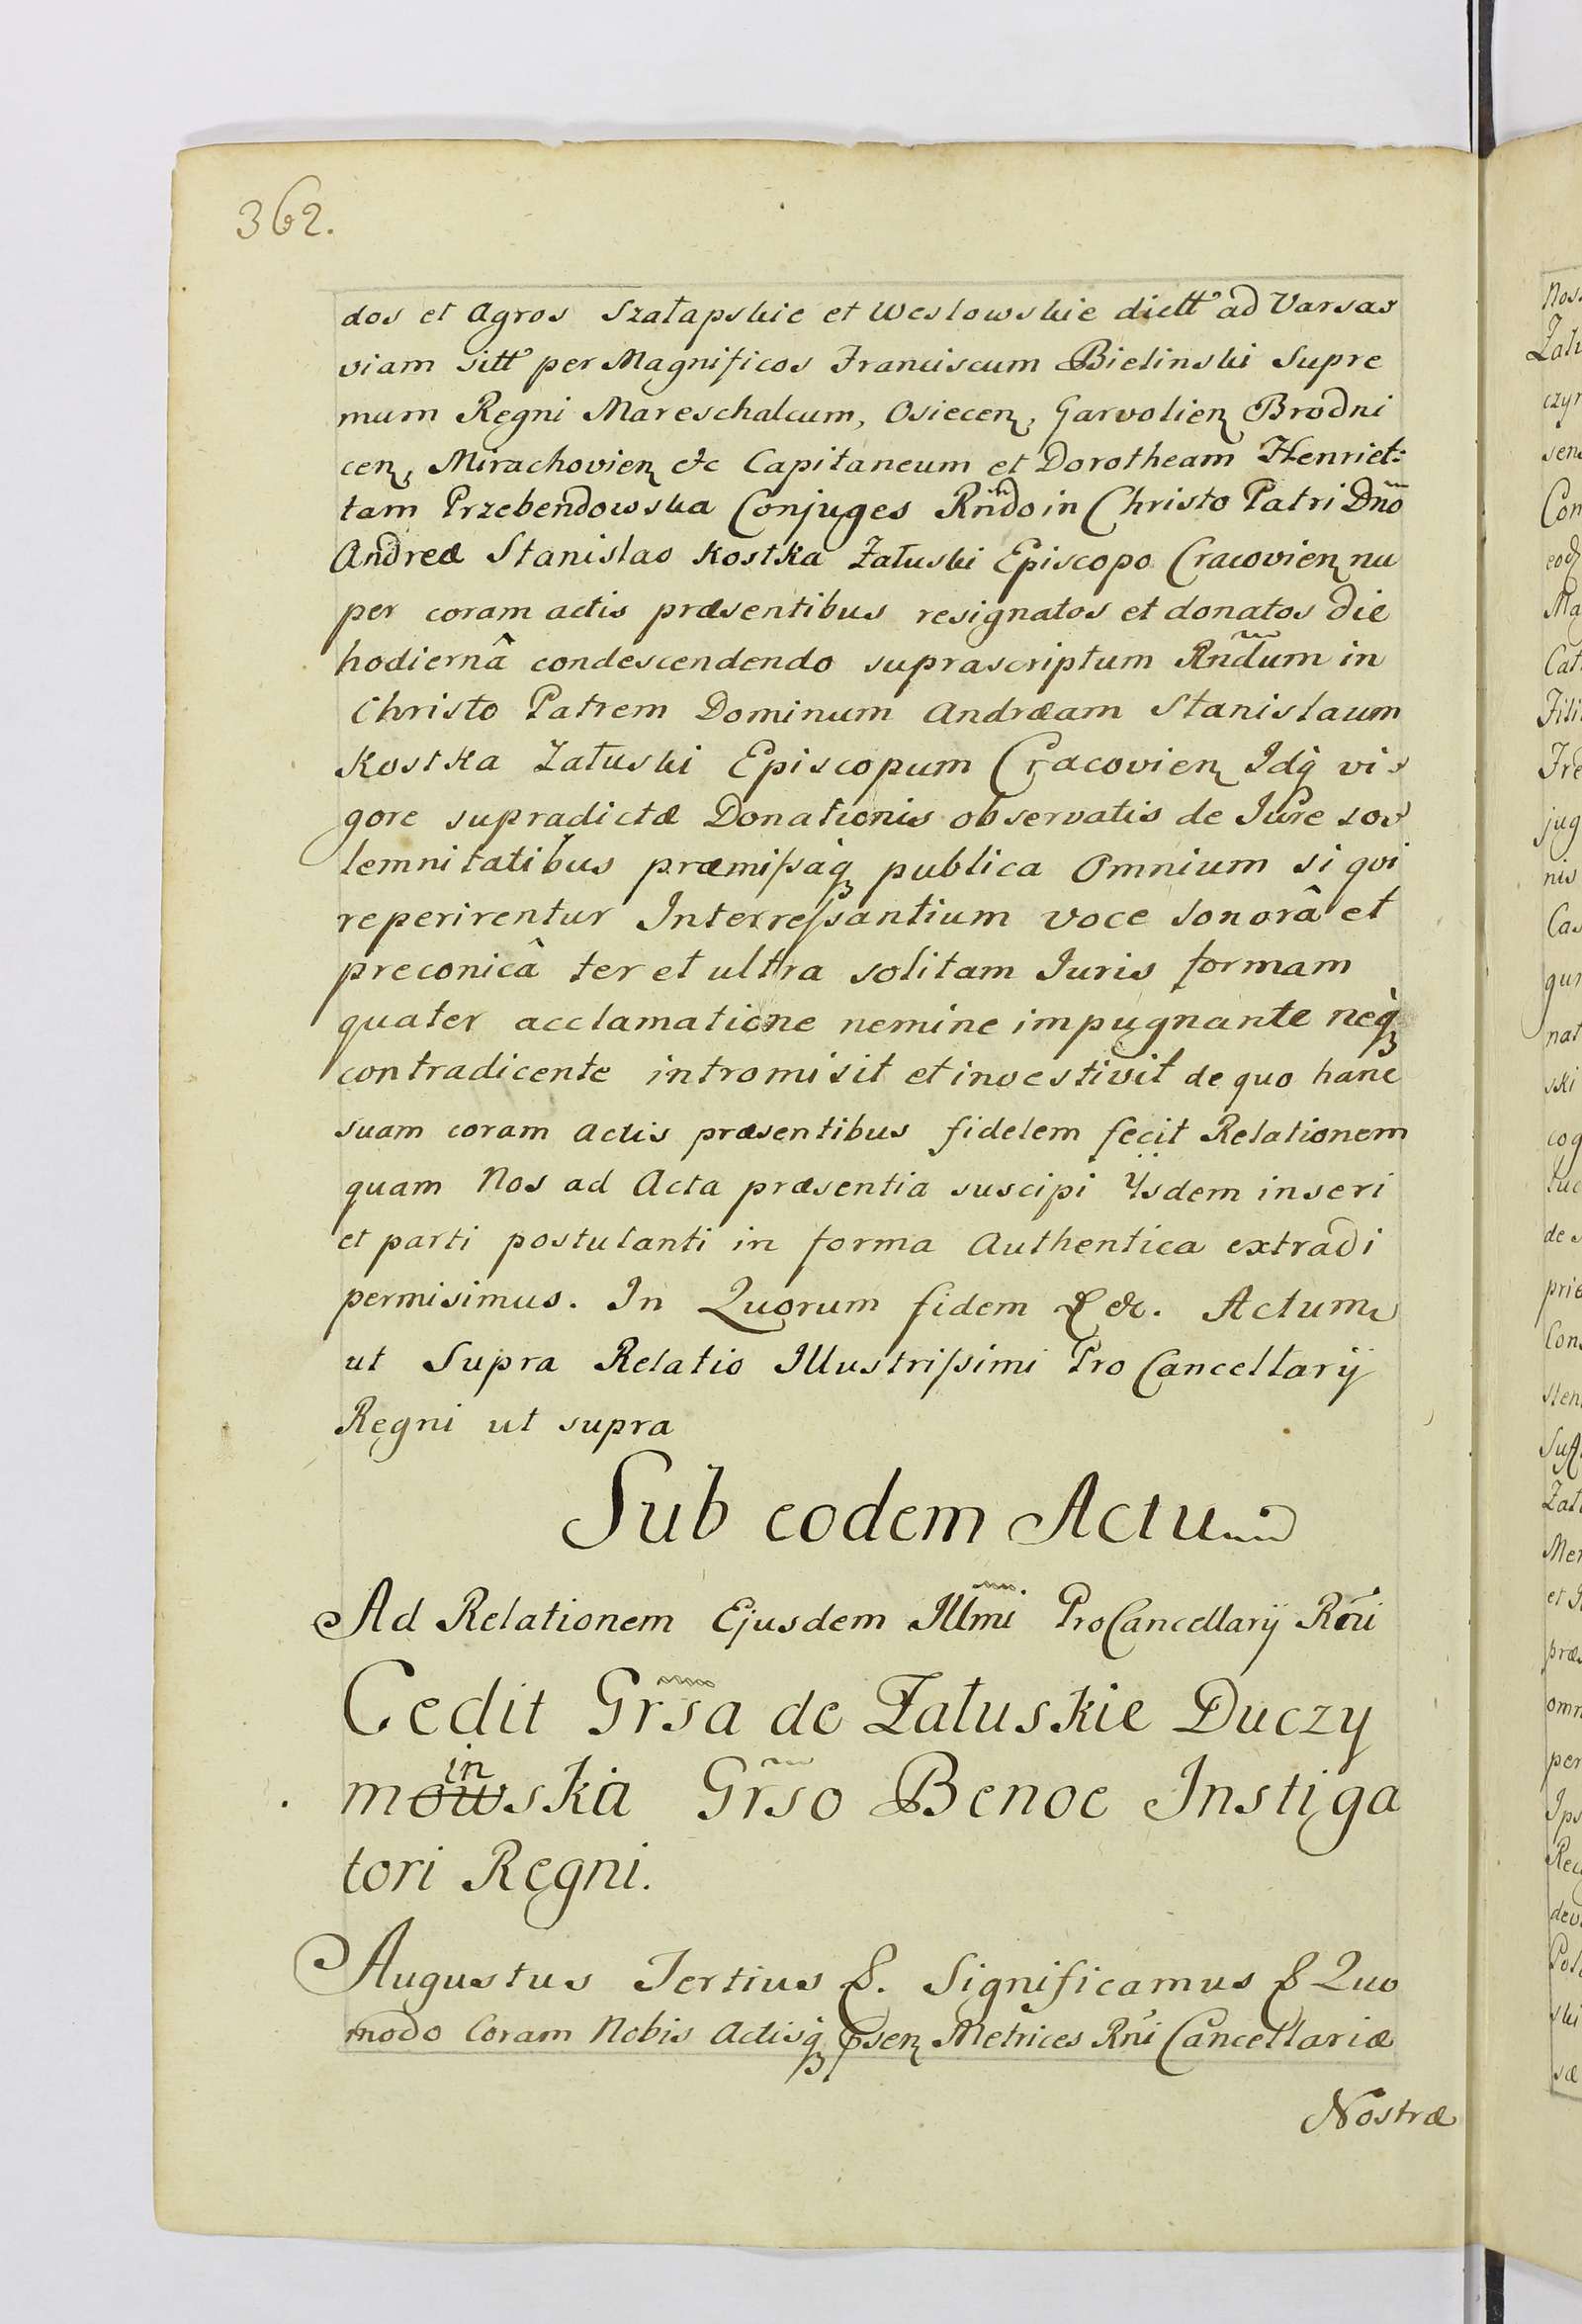 362.
dos et Agros Szałapskie et Weslowskie dictt° ad Varsa
viam sitt° per Magnificos Franciscum Bielinski Supre
mum Regni Mareschalcum, Osiecen, Garvolien Brodni
cen, Mirachovien etc Capitaneum et Dorotheam Henriet:
tam Przebendowska Conjuges Rñdo in Christo Patri Dño
Andreæ Stanislao Kostka Załuski Episcopo Cracovien nu
per coram actis præsentibus resignatos et donatos die
hodiernâ condescendendo suprascriptum Rñdum in
Christo Patrem Dominum Andræam Stanislaum
Kostka Załuski Episcopum Cracovien Idq vi
gore supradictæ Donationis observatis de Iure so
lemnitatibus præmißaq publica Omnium si qvi
reperirentur Interreßantium voce sonorâ et
preconicâ ter et ultra solitam Iuris formam
quater acclamatione nemine impugnante neq
contradicente intromisit et investivit de quo hanc
suam coram actis præsentibus fidelem fecit Relationem
quam Nos ad Acta præsentia suscipi Ÿsdem inseri
et parti postulanti in forma Authentica extradi
permisimus. In Quorum fidem & &. Actum
ut Supra Relatio Illustrißimi Pro Cancellarÿ
Regni ut supra
Sub eodem Actu
Ad Relationem Ejusdem Illmi ProCancellarÿ Rñi
Cedit Grsa de Załuskie Duczy
mowinska Grso Benoe Instiga
tori Regni.
Augustus Tertius &. Significamus & Quo
modo Coram Nobis Actisq Psen Metrices Rñi Cancellariæ
Nostræ